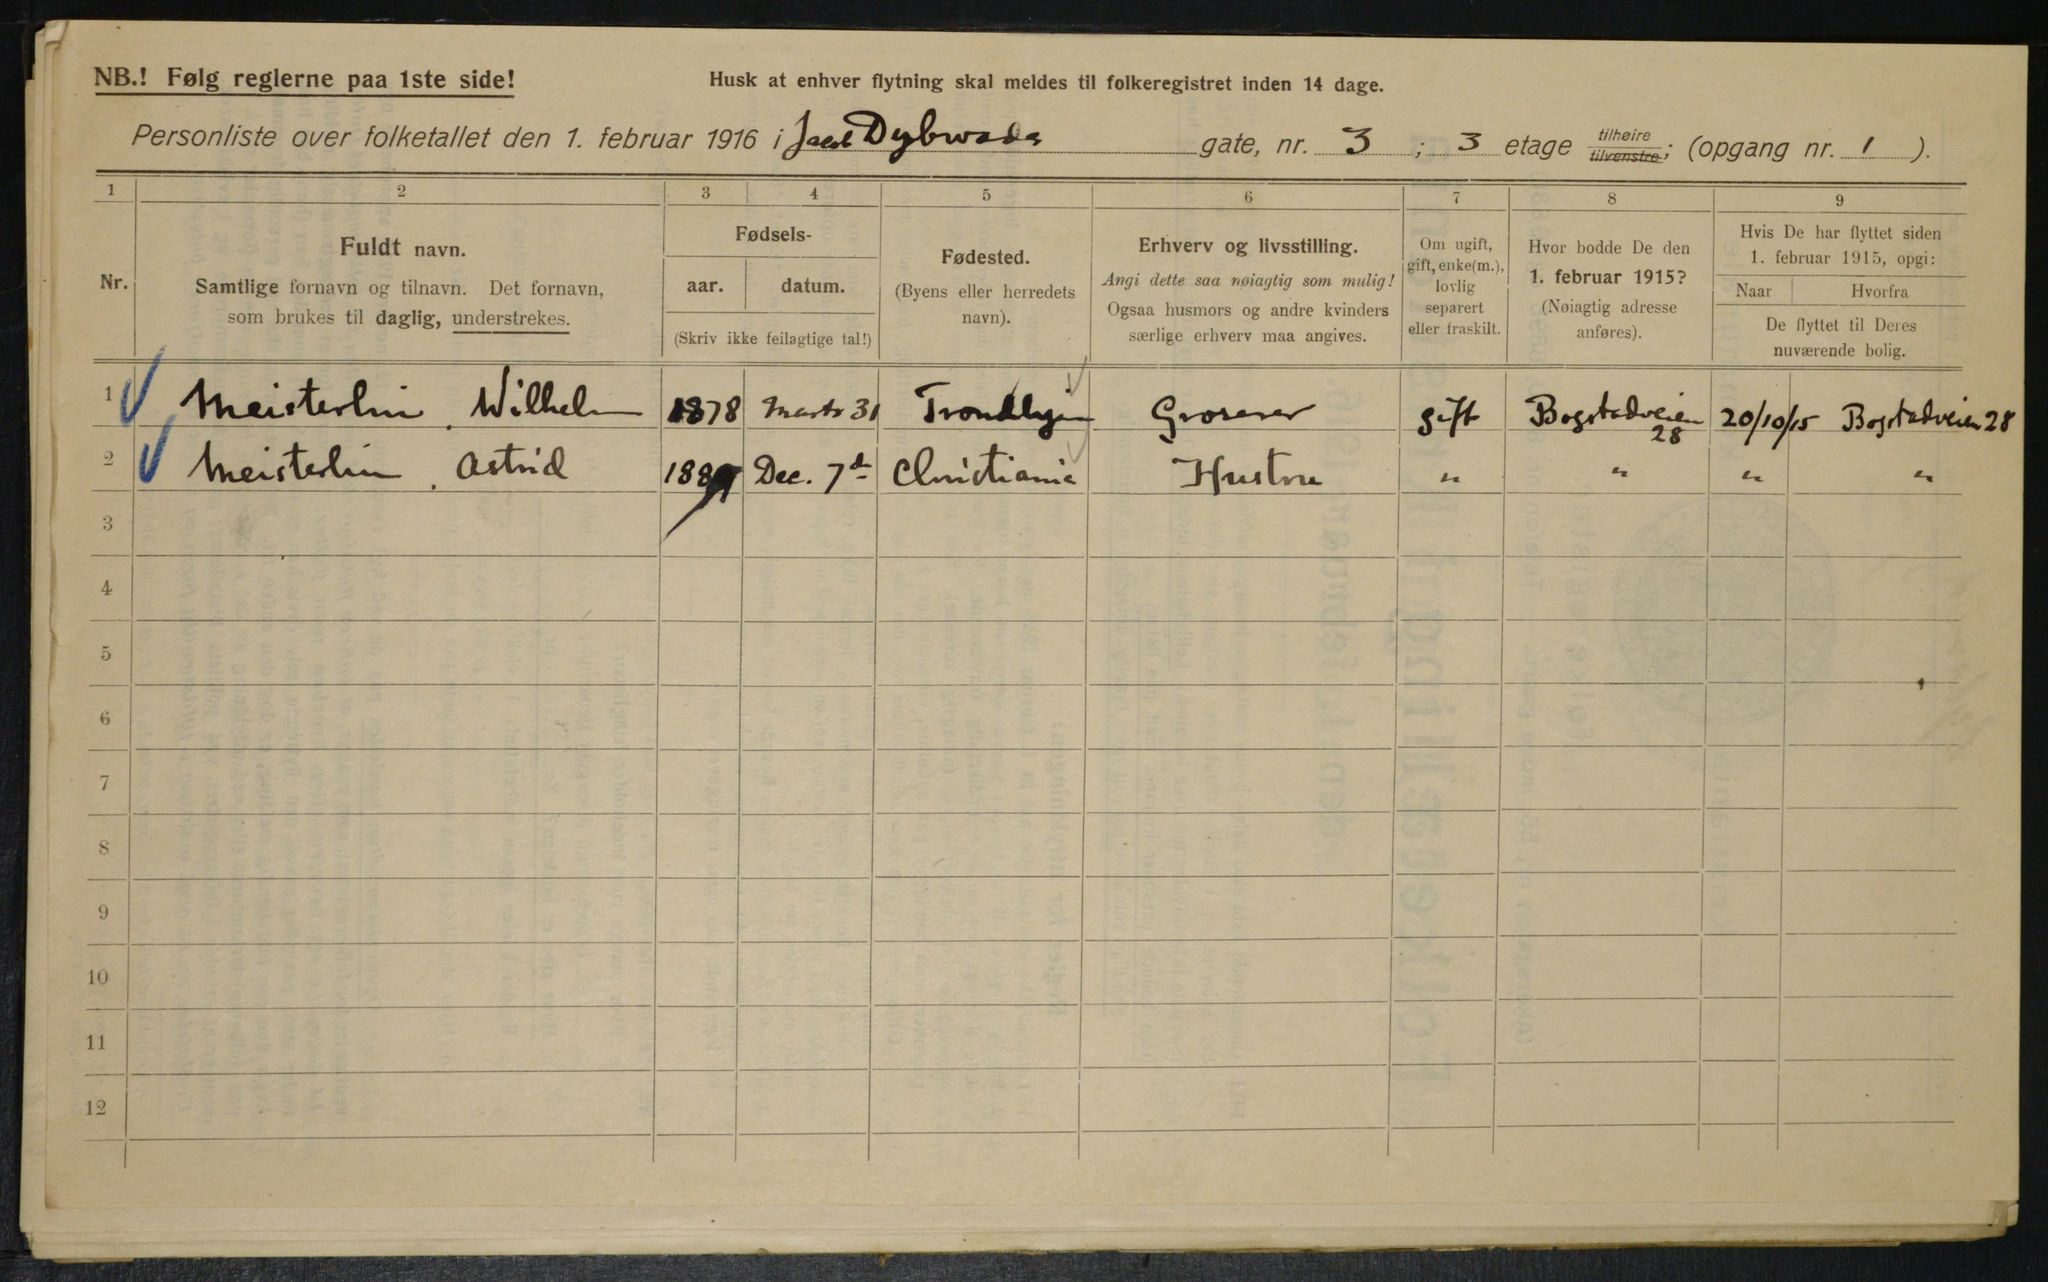 NB.! Følg reglerne paa 1ste side!
Husk at enhver flytning skal meldes til folkeregistret inden 14 dage.
Personliste over folketallet den 1. februar 1916 i Jacob Dybwads gate, nr. 3 ; 3 etage tilhøire tilvenstre; (opgang nr. 1 ).
1 2 3 4 5 6 7 8 9
Nr.
Fuldt navn.
Samtlige fornavn og tilnavn. Det fornavn,
som brukes til daglig, understrekes.
Fødsels-
aar. datum.
(Skriv ikke feilagtige tal!)
Fødested.
(Byens eller herredets
navn).
Erhverv og livsstilling.
Angi dette saa nøiagtig som mulig!
Ogsaa husmors og andre kvinders
særlige erhverv maa angives.
Om ugift,
gift, enke(m.),
lovlig
separert
eller fraskilt.
Hvor bodde De den
1. februar 1915?
(Nøiagtig adresse
anføres).
Hvis De har flyttet siden
1. februar 1915, opgi:
Naar Hvorfra
De flyttet til Deres
nuværende bolig.
1 Meisterlin, Wilhelm 1878 Marts 31 Trondhjem Groserer gift Bogstadveien 28 20/10/15 Bogstadveien 28
2 Meisterlin, Astrid 1889 Dec. 7d Christiania Hustru " " " "
3
4
5
6
7
8
9
10
11
12